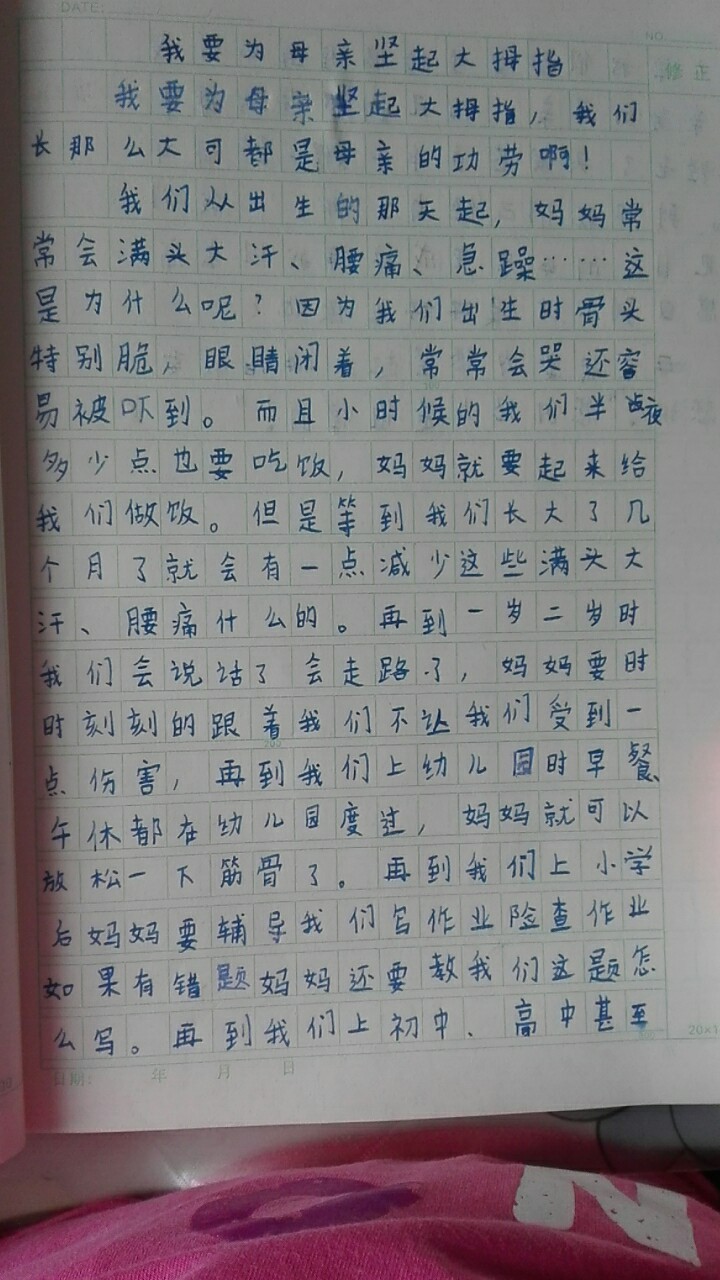 DATE:
NO.
我要为母亲坚起大拇指
修正
我要为母亲坚起大拇指，我们
长那么大可都是母亲的功劳啊！
我们从出生的那天起，妈妈常
常会满头大汗、腰痛、急躁……这
是为什么呢？因为我们出生时骨头
特别脆，眼睛闭着，常常会哭还容
易被吓到。而且小时候的我们半夜
多少点也要吃饭，妈妈就要起来给
我们做饭。但是等到我们长大了几
个月了就会有一点减少这些满头大
汗、腰痛什么的。再到一岁二岁时
我们会说话了会走路了，妈妈要时
时刻刻的跟着我们不让我们受到一
点伤害，再到我们上幼儿园时早餐、
午休都在幼儿园度过，妈妈就可以
放松一下筋骨了。再到我们上小学
后妈妈要辅导我们写作业险查作业
如果有错题妈妈还要教我们这题怎
么写。再到我们上初中、高中甚至
日期： 年 月 日